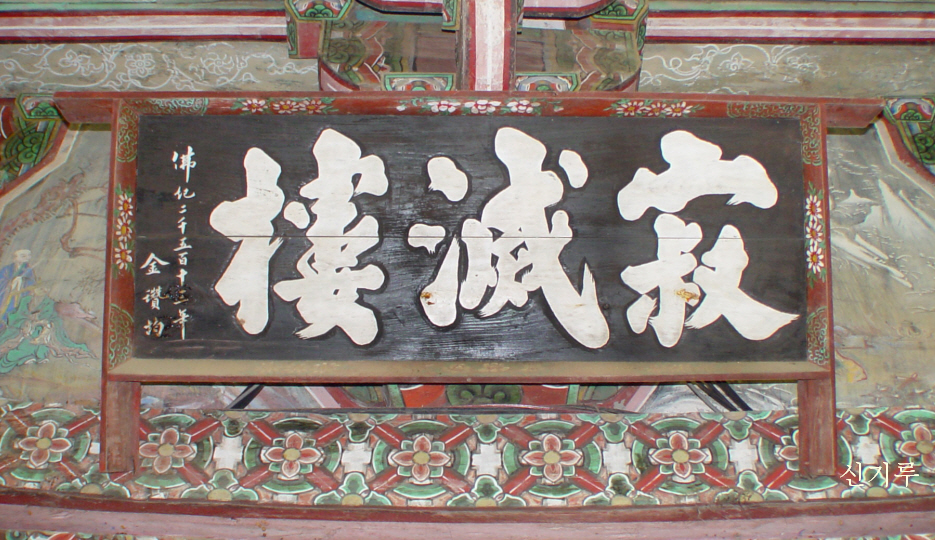 寂滅樓
佛紀二千五百十年
金均
신기루